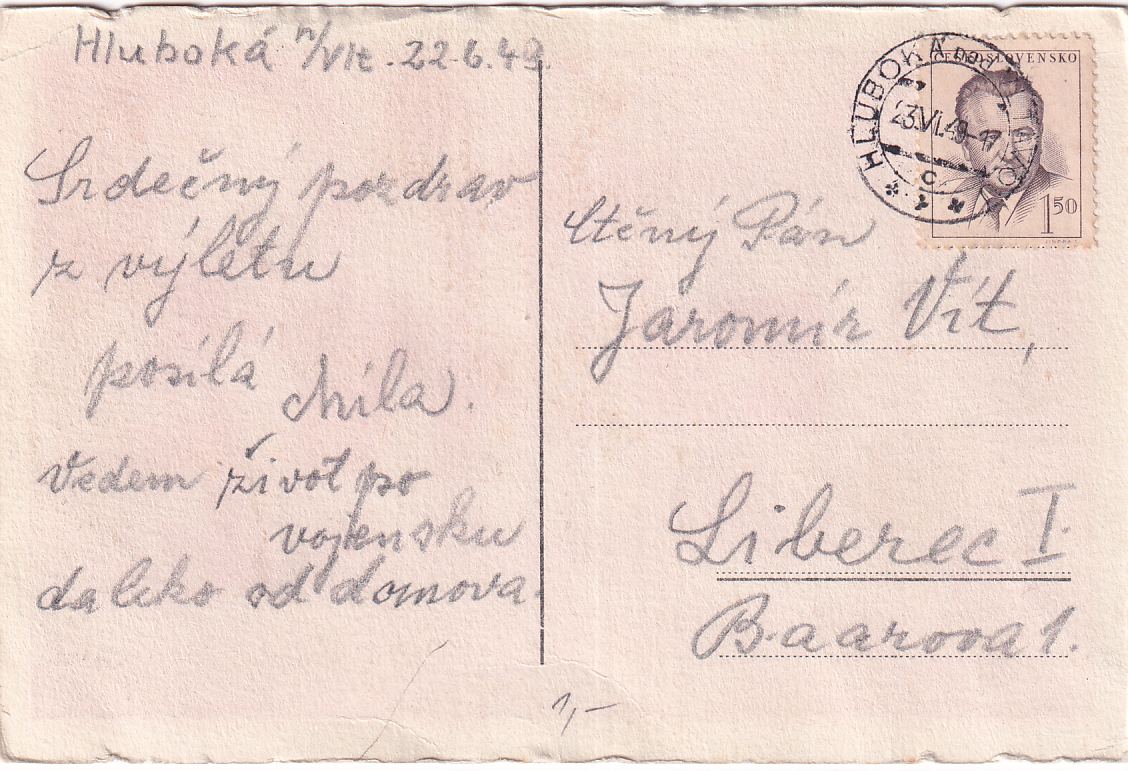 Hluboká n/Vlt. 22.6.49.
Srdečný pozdrav
z výletu
posílá
Míla.
Vedem život po
vojensku
daleko od domova.
HLUBOKÁ nad VLTAVOU
23.VI.49-17
c
ČESKOSLOVENSKO
1 50
Ctěný Pán
Jaromír Vít,
Liberec I.
Baarova 1.
1,-